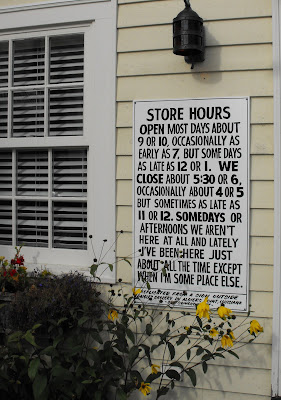 STORE HOURS
OPEN MOST DAYS ABOUT
9 OR 10, OCCASIONALLY AS
EARLY AS 7, BUT SOME DAYS
AS LATE AS 12 OR 1. WE
CLOSE ABOUT 5:30 OR 6,
OCCASIONALLY ABOUT 4 OR 5
BUT SOMETIMES AS LATE AS
11 OR 12. SOMEDAYS OR
AFTERNOONS WE AREN'T
HERE AT ALL AND LATELY
I'VE BEEN HERE JUST
ABOUT ALL THE TIME EXCEPT
WHEN I'M SOME PLACE ELSE.
FROM A SIGN OUTSIDE
LOUISIANA